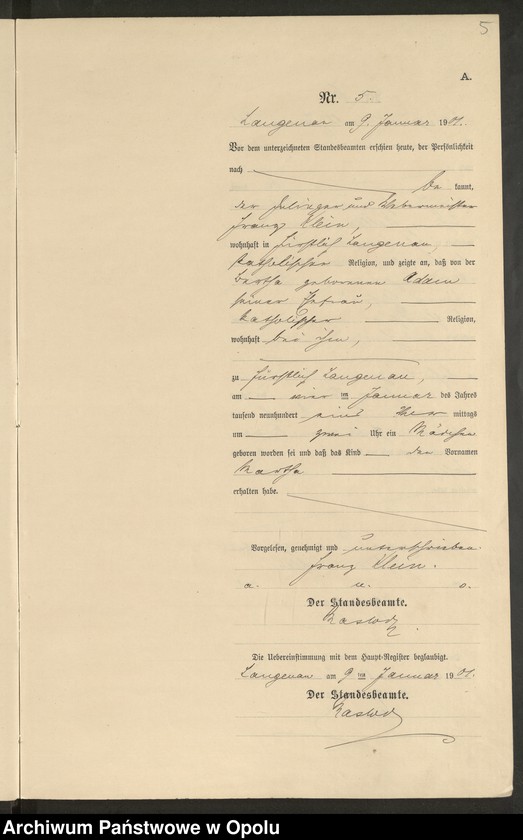 5
A.
Nr. 5.
Langenau am 9. Januar 1901.
Vor dem unterzeichneten Standesbeamten erschien heute, der Persönlichkeit
nach
be kannt,
der und Webermeister
Franz Klein,
wohnhaft in Fürstlich Langenau,
katholischer Religion, und zeigte an, daß von der
geborenen Adam
seiner Ehefrau,
katholischer Religion,
wohnhaft bei ihm,
zu Fürstlich Langenau,
am vier ten Januar des Jahres
tausend neunhundert eins Vor mittags
um zwei Uhr ein Mädchen
geboren worden sei und daß das Kind den Vornamen
Martha
erhalten habe.
Vorgelesen, genehmigt und unterschrieben.
Franz Klein.
a. u. s.
Der Standesbeamte.
Die Uebereinstimmung mit dem Haupt-Register beglaubigt.
Langenau am 9 ten Januar 1901.
Der Standesbeamte.
Archiwum Państwowe w Opolu